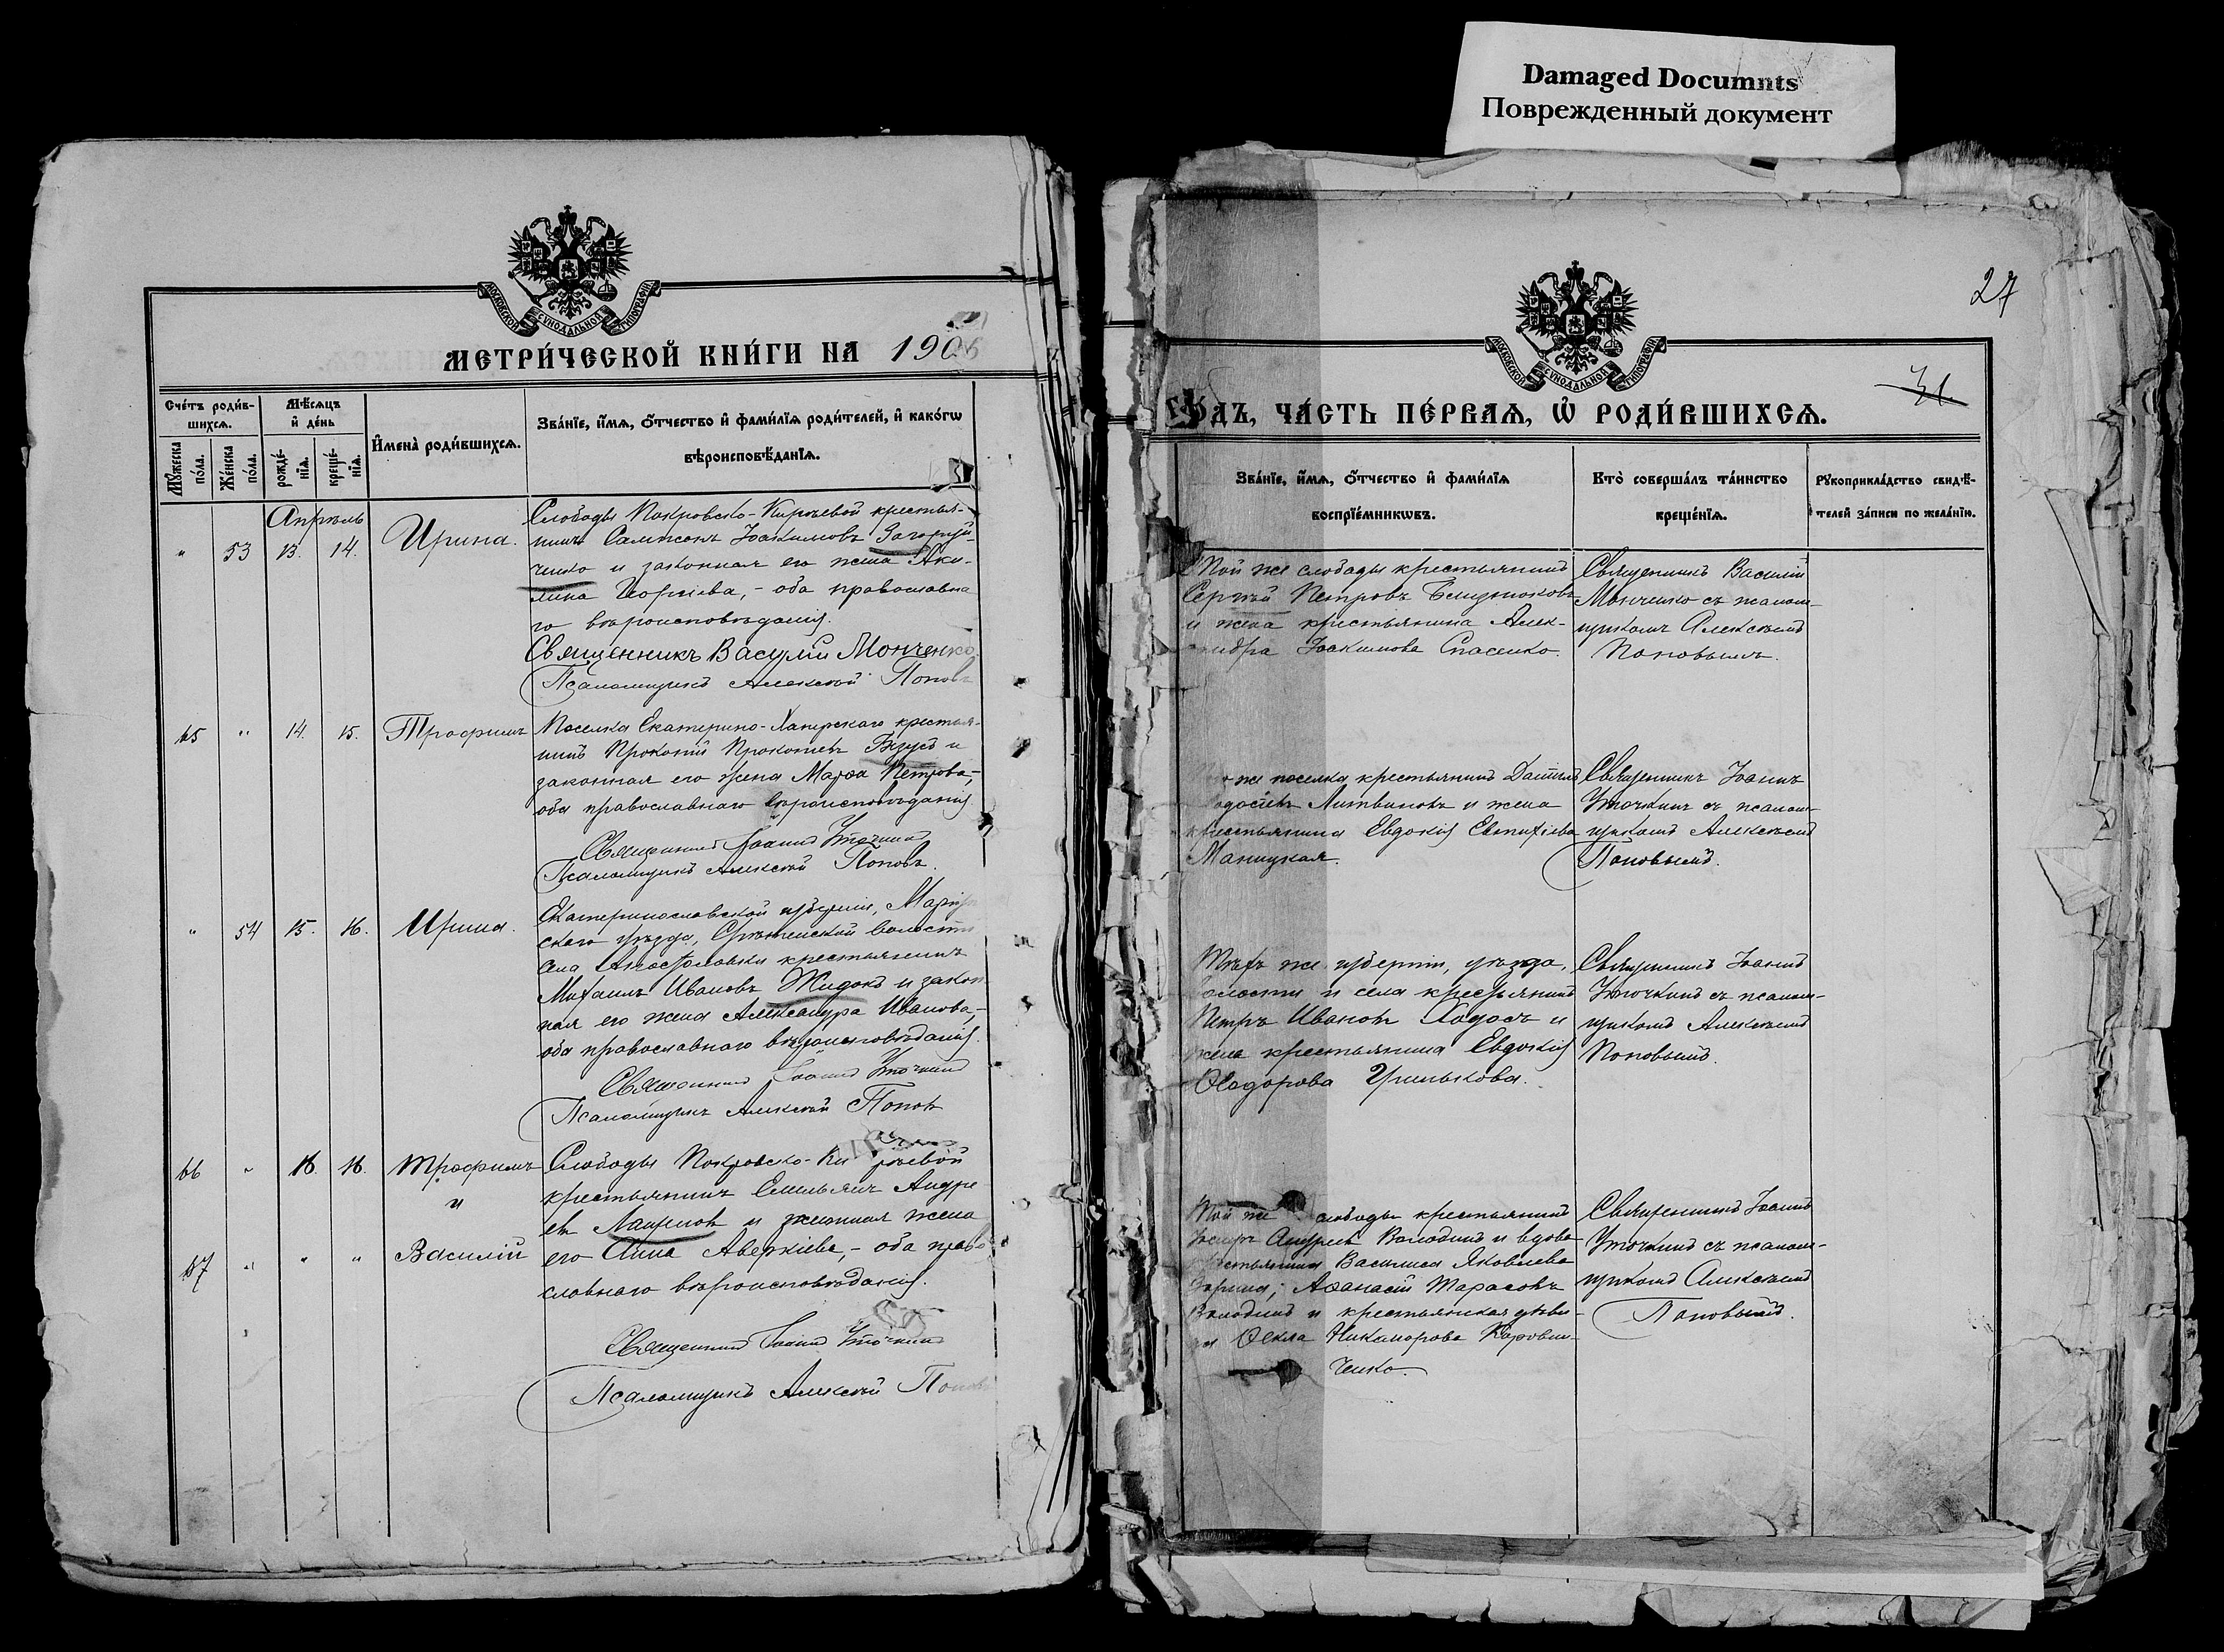 Damaged Documnts
Поврежденный документ
27
31.
МОСКОВСКОЙ СѴНОДАЛЬНОЙ ТИПОГРАФІИ
МЕТРИ́ЧЕСКОЙ КНИ́ГИ НА 190
Сче́тъ роди́в-
шихсѧ.
Мѣ́сѧцъ
и҆ де́нь
Мꙋ́жеска
по́ла.
Же́нска
по́ла.
рожде́-
нїѧ.
креще́-
нїѧ.
И҆мена̀ роди́вшихсѧ.
Зва́нїе, и҆́мѧ, ѻ҆́тчество и҆ фами́лїѧ роди́телей, и҆ како́гѡ
вѣроисповѣ́данїѧ.
Апрѣль
" 53 13. 14. Ирина.
Слободы Покровско-Кирѣевой крестья-
нинъ Сампсонъ Іоакимовъ Загоруй-
ченко и законная его жена Аки-
лина Георгіева, - оба православна
го вѣроисповѣданія.
Священникъ Василій Монченко
Псаломщикъ Алексѣй Поповъ
65 " 14. 15. Трофимъ
Поселка Екатерино-Хапрскаго крестья-
нинъ Прокопій Прокопіевъ и
законная его жена Марѳа Петрова,-
оба православнаго вѣроисповѣданія
Священникъ Іоаннъ Уточкинъ
Псаломщикъ Алексѣй Поповъ.
" 54 15. 16. Ирина.
Екатеринославской губерніи,
скаго уѣзда, Срѣтенской волости
села Апостоловки крестьянинъ
Михаилъ Ивановъ Жидокъ и закон
ная его жена Александра Иванова,-
оба православнаго вѣроисповѣданія.
Священникъ Іоаннъ Уточкинъ
Псаломщикъ Алексѣй Поповъ
66 " 16. 16. Трофимъ
и
67 " " " Василій
Слободы Покровско-Ки рѣевой
крестьянинъ Емельянъ Андре
евъ и законная жена
его Анна Аверкіева, - оба право
славнаго вѣроисповѣданія.
Священникъ Іоаннъ Уточкинъ
Псаломщикъ Алексѣй Поповъ
МОСКОВСКОЙ СѴНОДАЛЬНОЙ ТИПОГРАФІИ
ГО́ДЪ, ЧА́СТЬ ПЕ́РВАѦ, Ѡ҆ РОДИ́ВШИХСѦ.
Зва́нїе, и҆́мѧ, ѻ҆́тчество и҆ фами́лїѧ
воспрїе́мникѡвъ.
Кто̀ соверша́лъ та́инство
креще́нїѧ.
Рꙋкоприкла́дство свидѣ́-
телей за́писи по жела́нїю.
Той же слободы крестьянинъ
Сергѣй Петровъ
и жена крестьянина Алек-
сандра Іоакимова Спасенко.
Священникъ Василій
Монченко съ псалом-
щикомъ Алексѣемъ
Поповымъ.
же поселка крестьянинъ Даніилъ
Литвиновъ и жена
крестьянина Евдокія Евтихіева
Маницкая.
Священникъ Іоаннъ
Уточкинъ съ псалом-
щикомъ Алексѣемъ
Поповымъ.
Тѣхъ же губерніи, уѣзда,
волости и села крестьянинъ
Петръ Ивановъ Ходосъ и
жена крестьянина Евдокія
Ѳеодорова
Священникъ Іоаннъ
Уточкинъ съ псалом-
щикомъ Алексѣемъ
Поповымъ.
Той же слободы крестьянинъ
Андреевъ Володинъ и вдова
крестьянина Василиса Яковлева
Аѳанасій Тарасовъ
Володинъ и крестьянская дѣви-
ца Ѳекла Никанорова
ченко.
Священникъ Іоаннъ
Уточкинъ съ псалом-
щикомъ Алексѣемъ
Поповымъ.